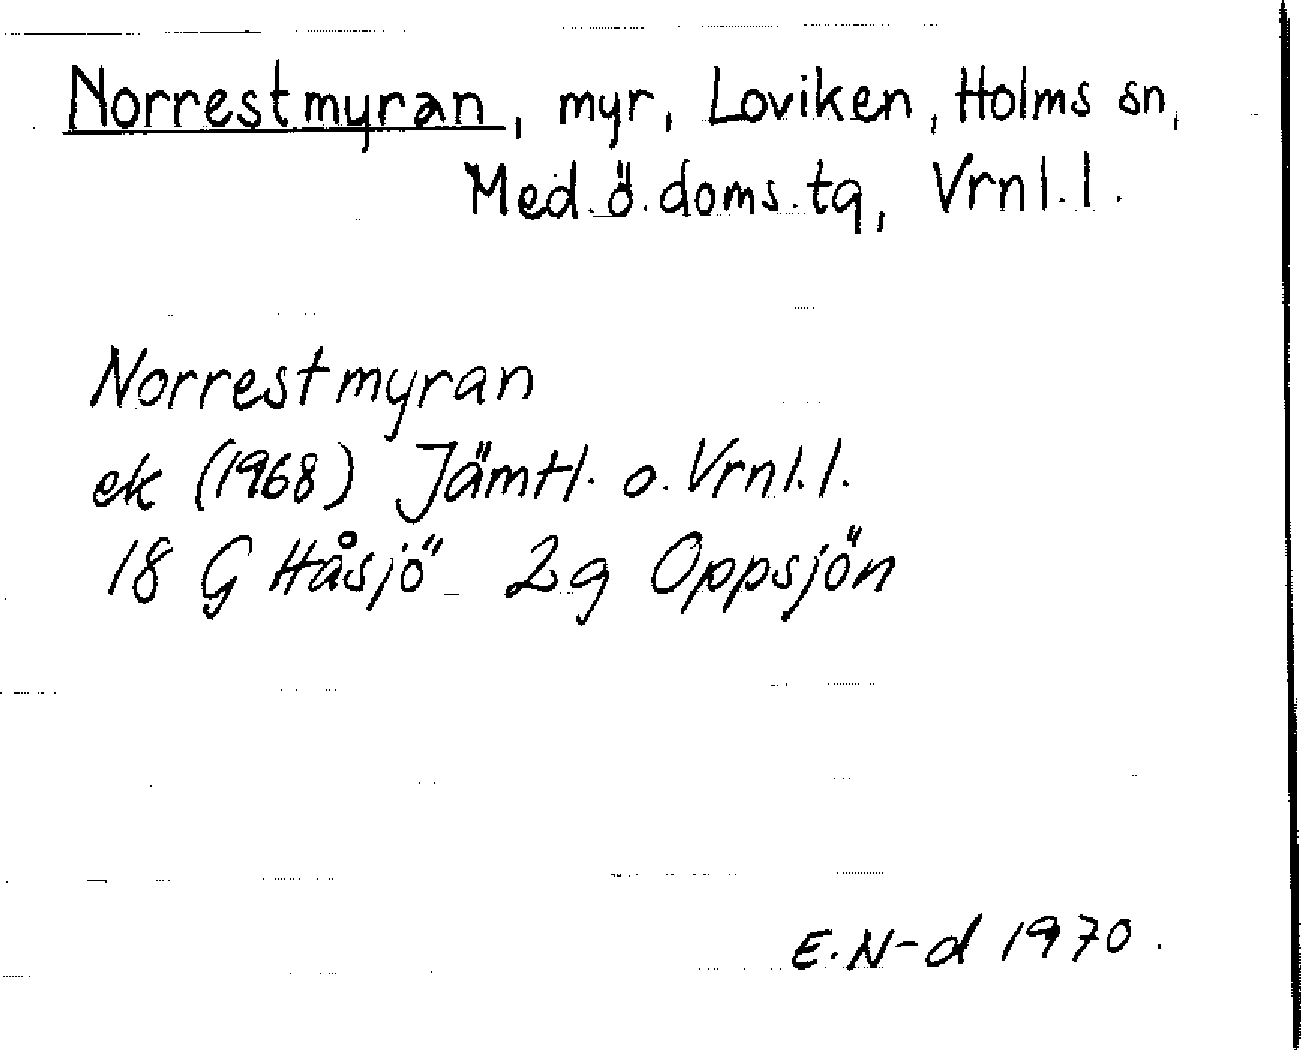 Norrestmyran, myr, Loviken, Holms sn,
Med.ö.doms.tg, Vrnl.l.
Norrestmyran
ek (1968) Jämtl. o. Vrnl.l.
18 G Håsjö 2g Oppsjön
E.N-d 1970.